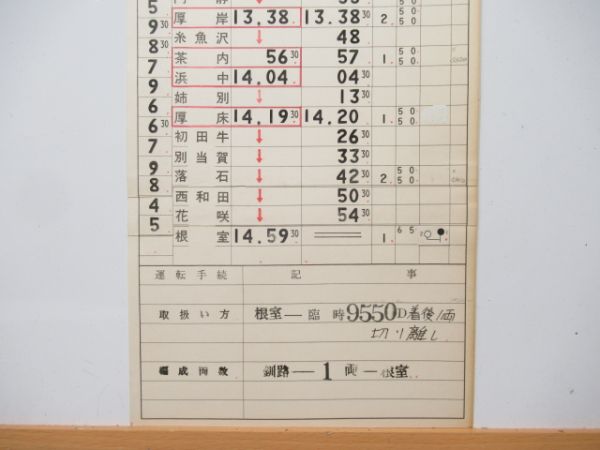 5
9 厚岸 13.38 13.38 30 2. 50 50
830 糸魚沢 ↓ 48
7 茶内 56 30 57 1. 50 50
9 浜中 14.04 04 30
6 姉別 ↓ 13 30
630 厚床 14.19 30 14.20 1. 50 50
7 初田牛 ↓ 26 30
9 別当賀 ↓ 33 30
8 落石 ↓ 42 30 2. 50 50
4 西和田 ↓ 50 30
5 花咲 ↓ 54 30
根室 14.59 30 1. 65
運転手続 記事
取扱い方 根室―臨時9550D着後1両
切り離し
編成両数 釧路―1両―根室